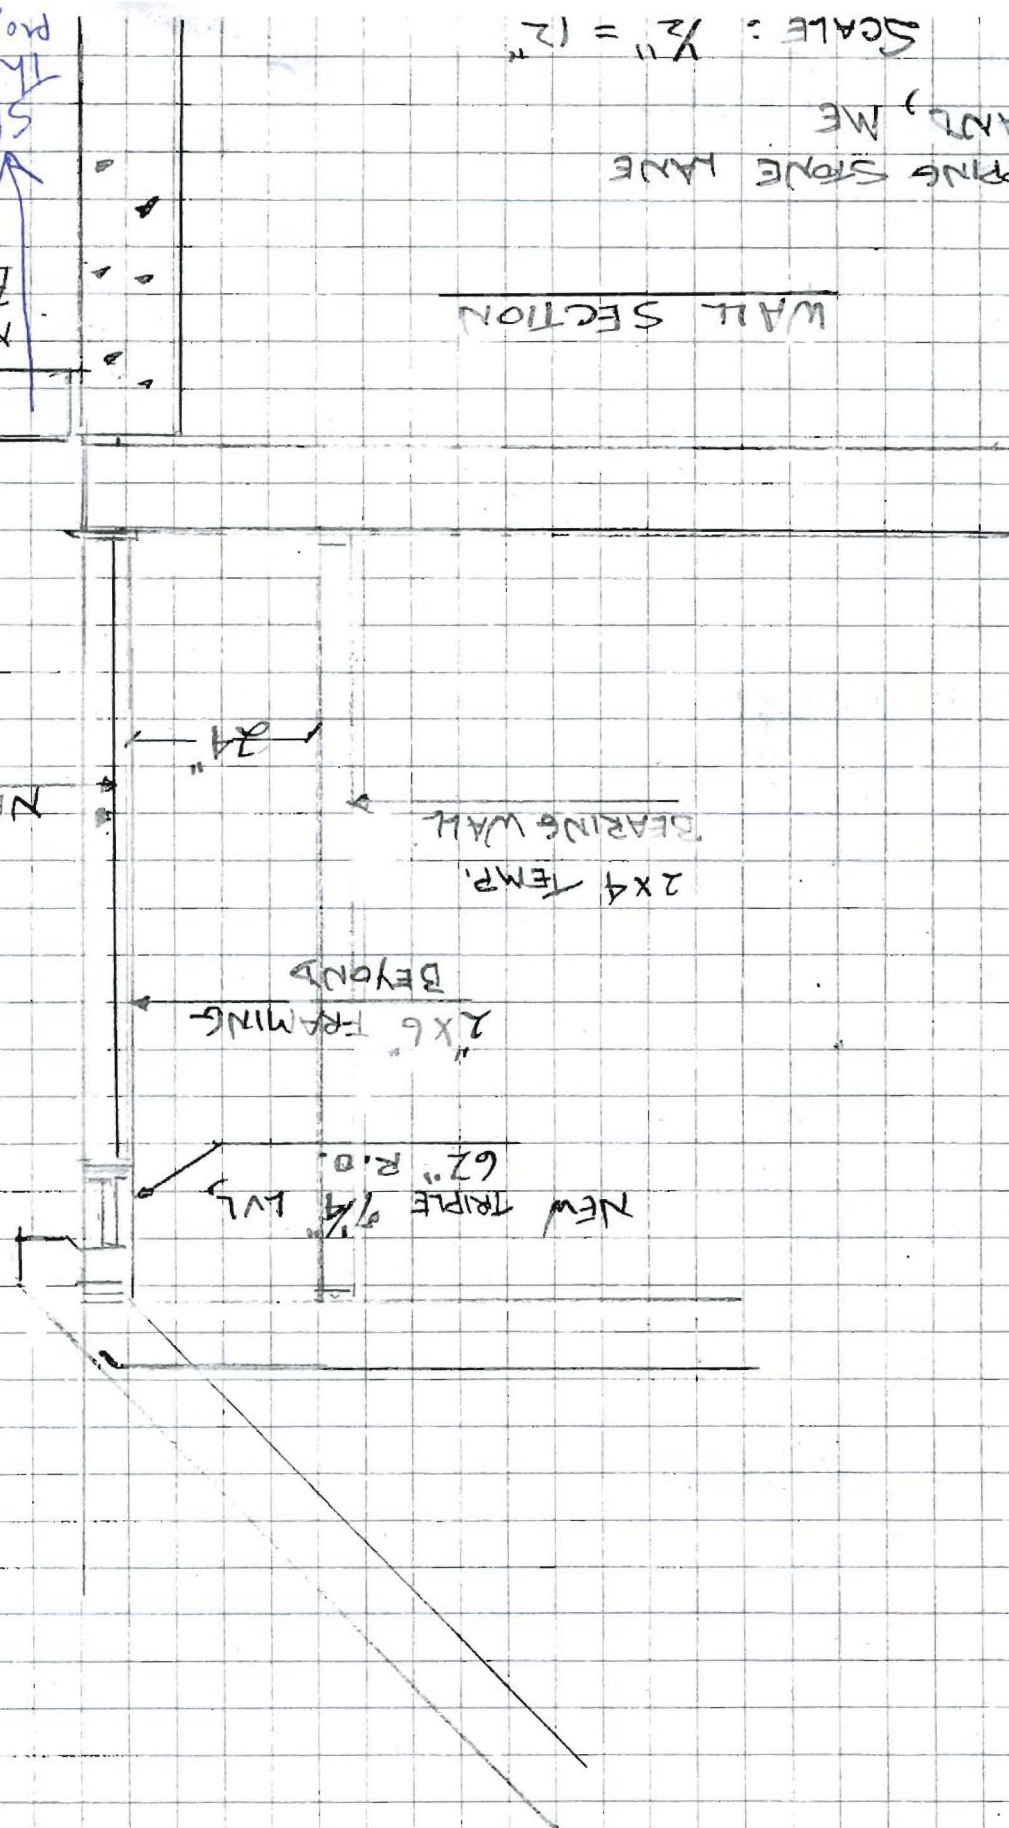 NEW TRIPLE LVL,
62" R.O.
2"x6" FRAMING
BEYOND
2x4 TEMP.
BEARING WALL
24"
WALL SECTION
PPING STONE LANE
AND, ME
SCALE: 1/2" = 12"
Th
pro